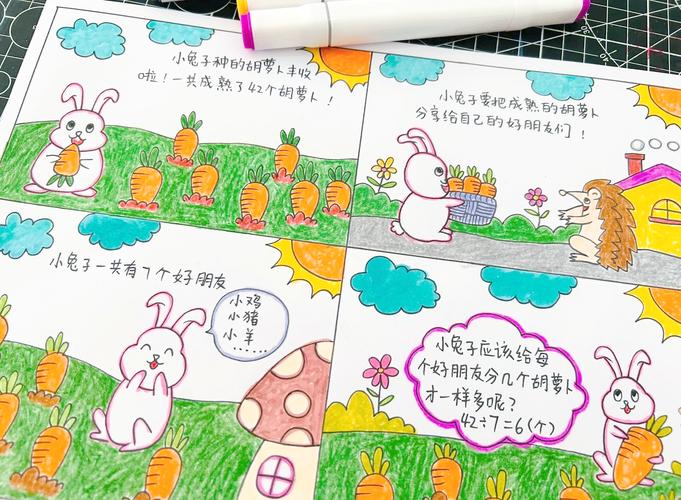 小兔子种的胡萝卜丰收
啦！一共成熟了42个胡萝卜！
小兔子要把成熟的胡萝卜
分享给自己的好朋友们！
小兔子一共有7个好朋友
小鸡
小猪
小羊
……
小兔子应该给每
个好朋友分几个胡萝卜
才一样多呢？
42÷7=6(个)